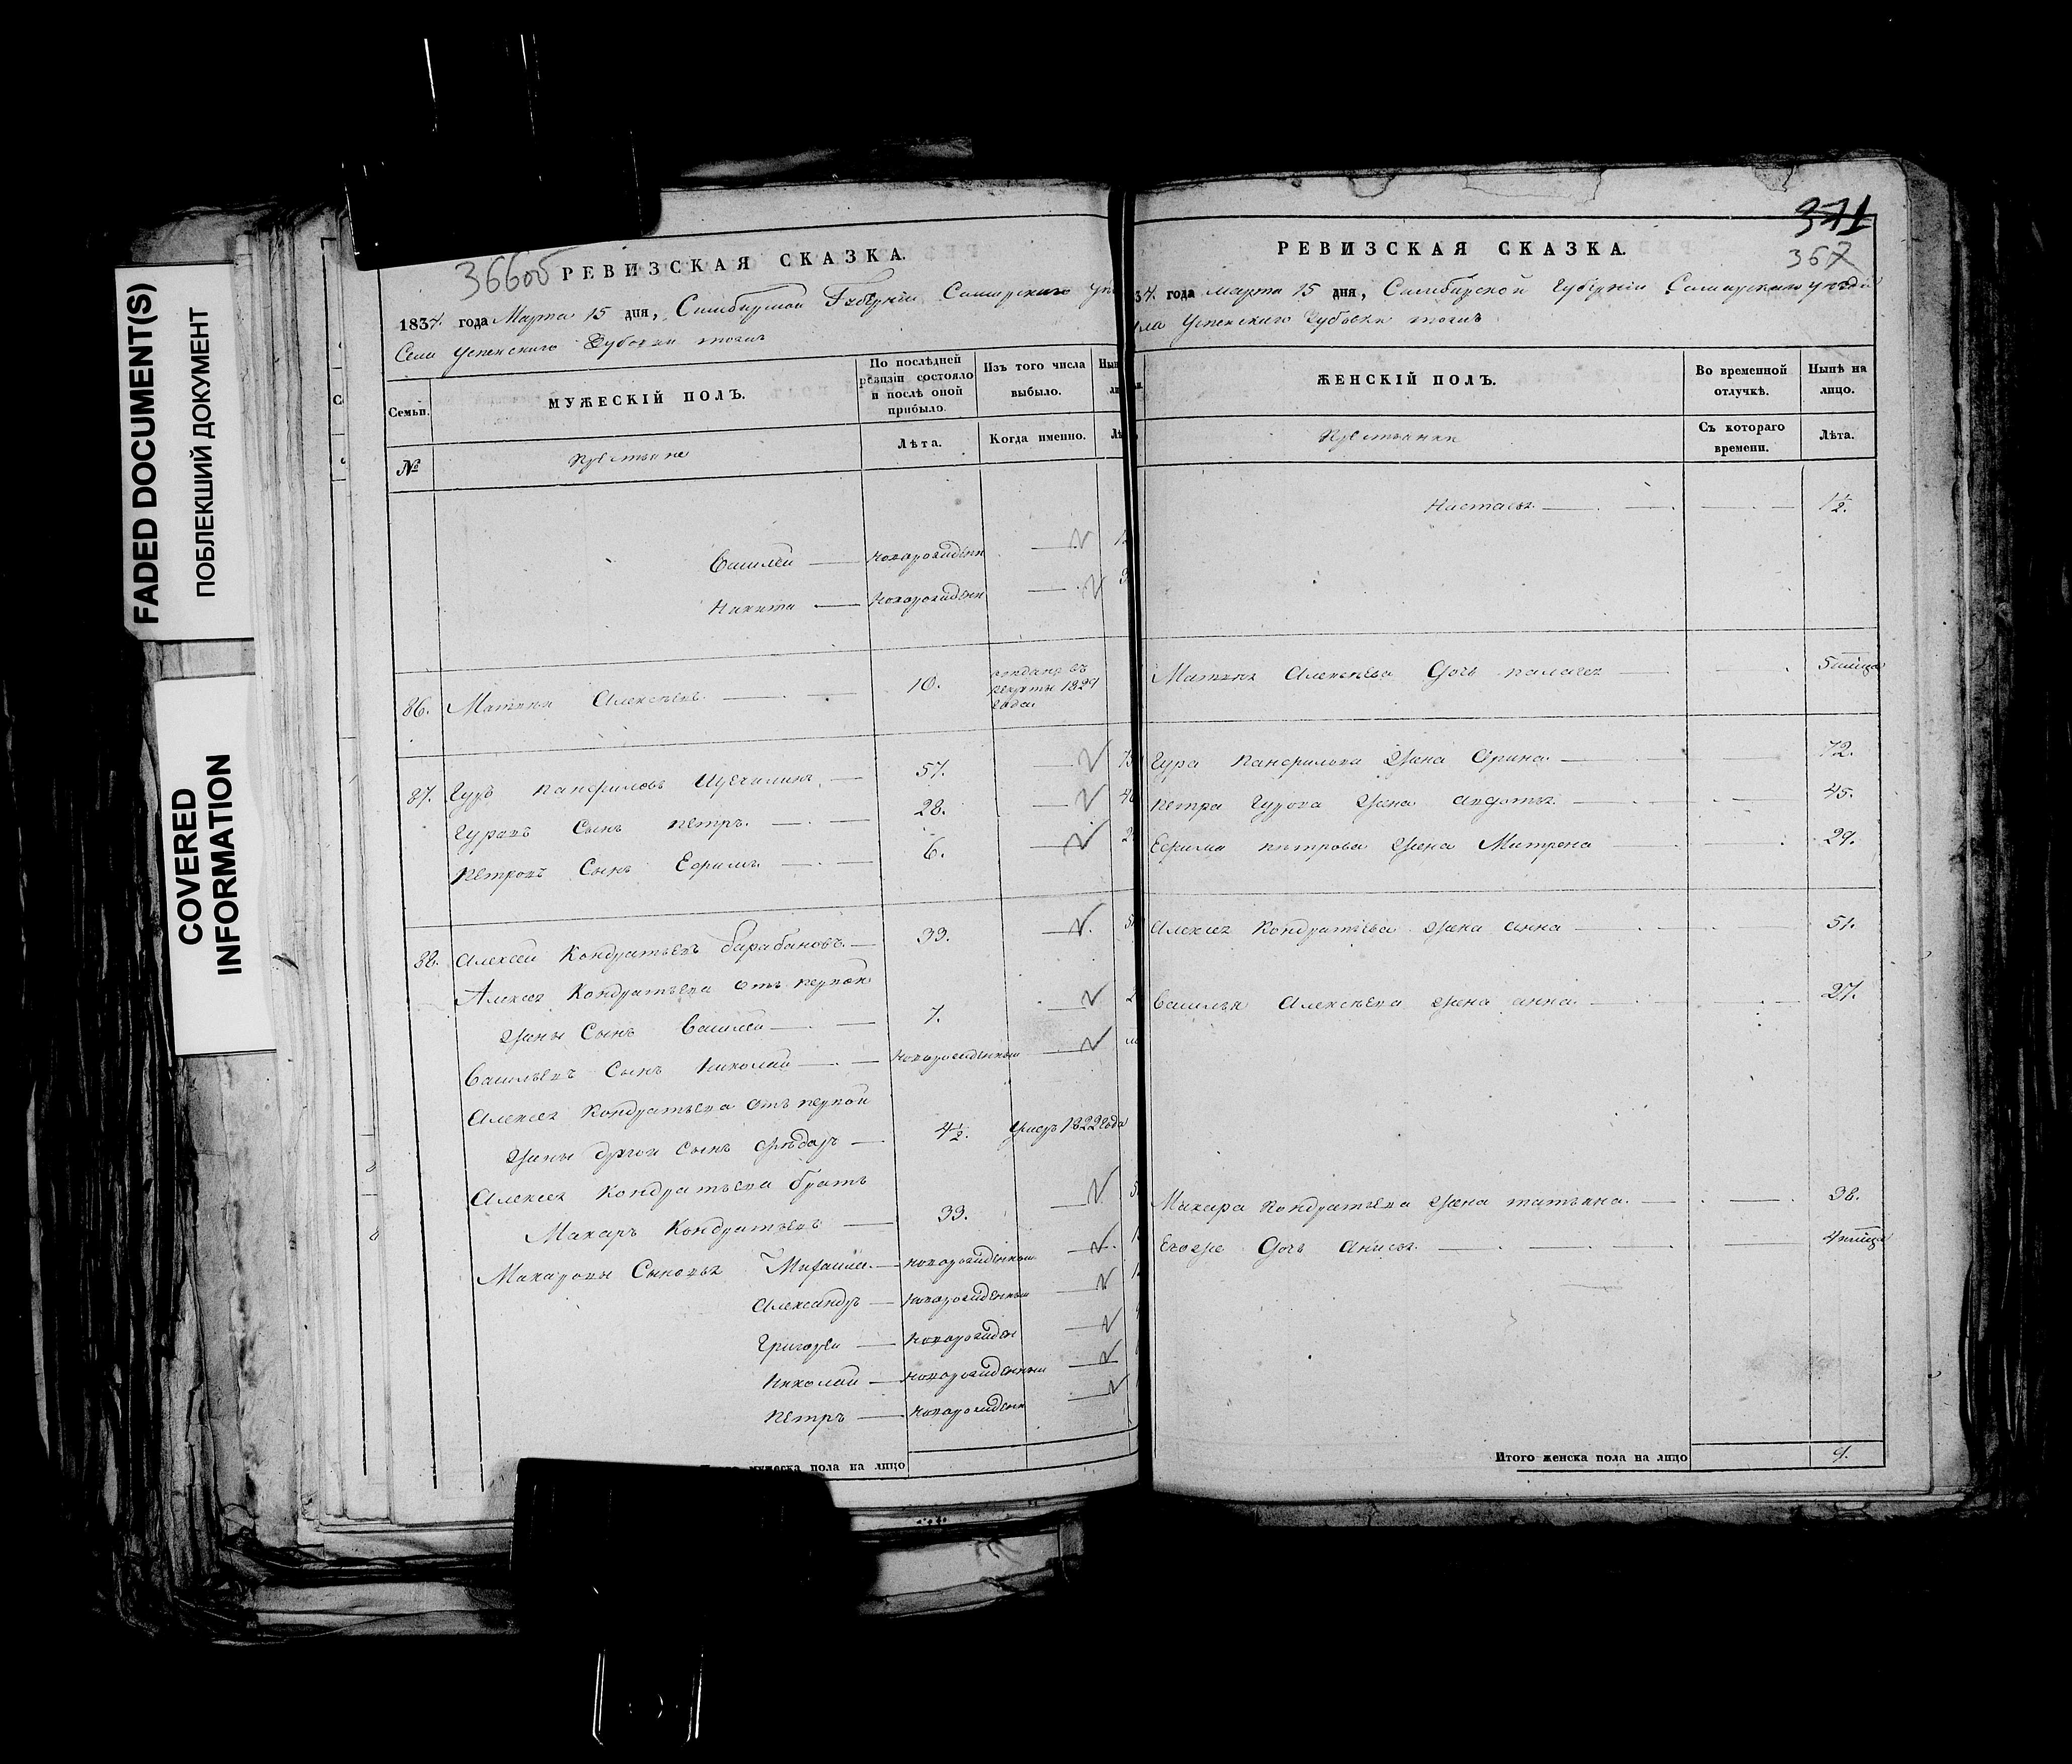 FADED DOCUMENT(S)
ПОБЛЕКШИЙ ДОКУМЕНТ
COVERED
INFORMATION
366об
РЕВИЗСКАЯ СКАЗКА.
1834. года Марта 15 дня, Симбирской Губерніи Самарскаго
Села Успенскаго
Семьи.
МУЖЕСКІЙ ПОЛЪ.
По послѣдней
ревизіи состояло
и послѣ оной
прибыло.
Изъ того числа
выбыло.
№
Лѣта.
Когда именно.
Василей — новорожденн
Никита — новорожденн
86. Матвей Алексѣевъ — 10. отданъ въ
рекруты 1829
года
87. Гуръ Панфиловъ — 57.
Гуровъ Сынъ Петръ. — 28.
Петровъ Сынъ Ефимъ — 6.
88. Алексей Кондратьевъ Барабановъ — 33.
Алексея Кондратьева отъ первой
жены Сынъ Василей — 7.
Васильевъ Сынъ Николай — новорожденный
Алексея Кондратьева отъ первой
жены другой Сынъ Федоръ — 4½. умеръ 1822 года
Алексея Кондратьева братъ
Макаръ Кондратьевъ — 33.
Макаровы Сыновья Михайла — новорожденный
Александръ — новорожденный
Григорей — новорожден
Николай — новорожденный
Петръ — новорожденн
мужеска пола на лицо
371
367
РЕВИЗСКАЯ СКАЗКА.
34. года Марта 15 дня, Симбирской Губерніи Самарскаго уезда
ла Успенскаго
ЖЕНСКІЙ ПОЛЪ.
Во временной
отлучкѣ.
Нынѣ на
лицо.
Съ котораго
времени.
Лѣта.
Настасья — 1½.
Матвея Алексѣева дочь Палагея — 5
Гура Панфилова жена Орина — 72.
Петра Гурова жена Авдотья — 45.
Ефима Петрова жена Матрена — 29.
Алексея Кондратьева жена Анна — 51.
Василья Алексѣева жена Анна — 27.
Макара Кондратьева жена Татьяна. — 38.
Его же дочь Анисья. — 4
Итого женска пола на лицо 9.